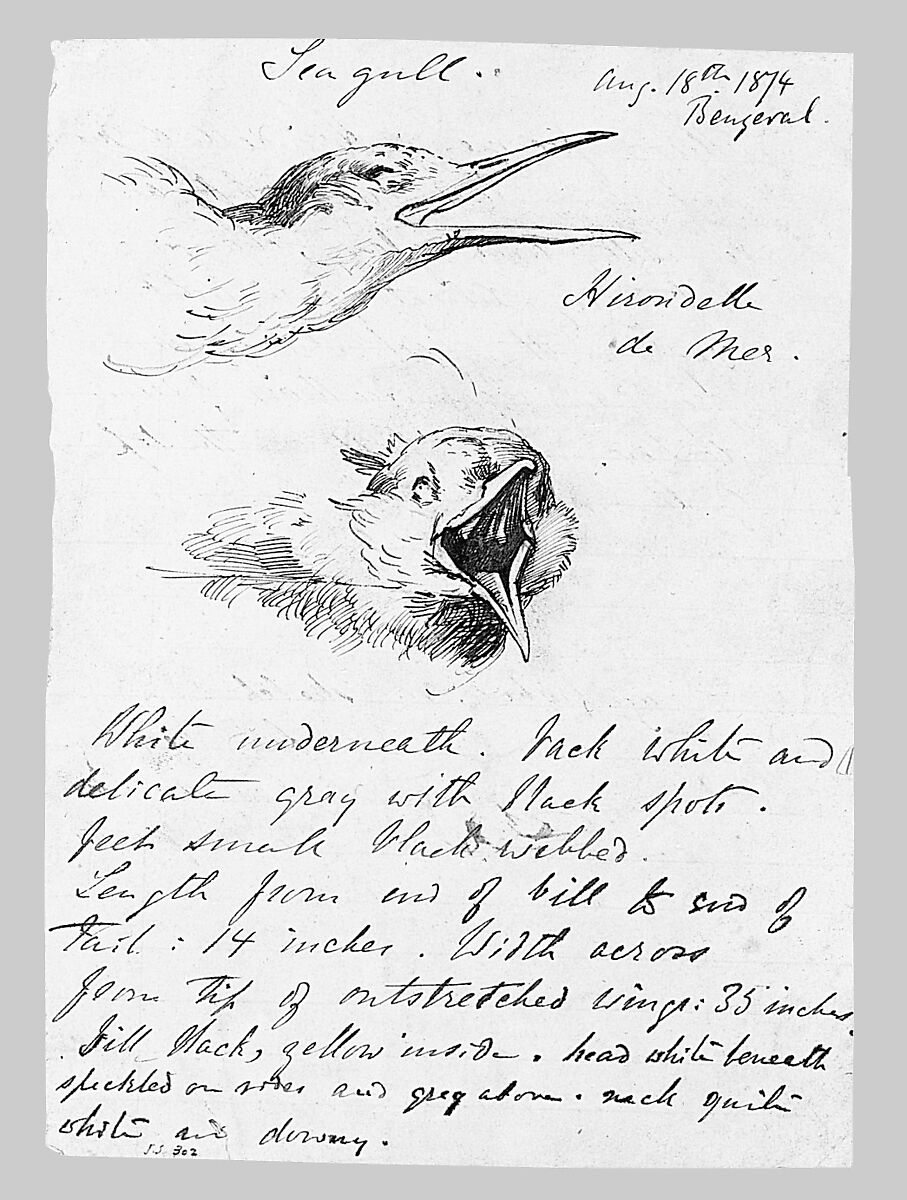 Sea gull.
Aug. 18th 1874
Benzeval.
Hirondelle
de Mer.
White underneath. back white and
delicate gray with black spots.
feet small black webbed.
Length from end of bill to end of
tail: 14 inches. Width across
from tip of outstretched wings: 35 inches.
Bill black, yellow inside. head white beneath
speckled on sides and grey above. neck quite
white and downy.
S.S. 302